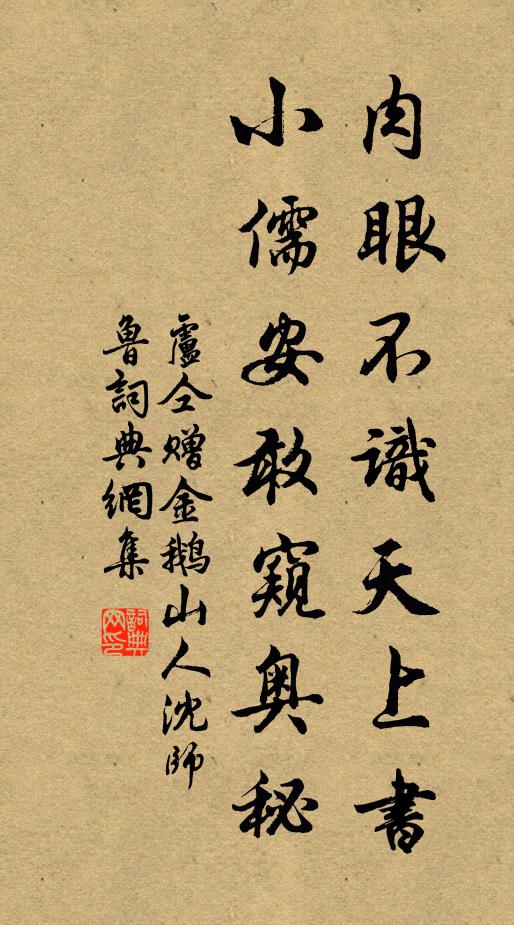 肉眼不識天上書
小儒安敢窺奧秘
盧仝赠金鵝山人沈師
魯詞典網集
詞典网印